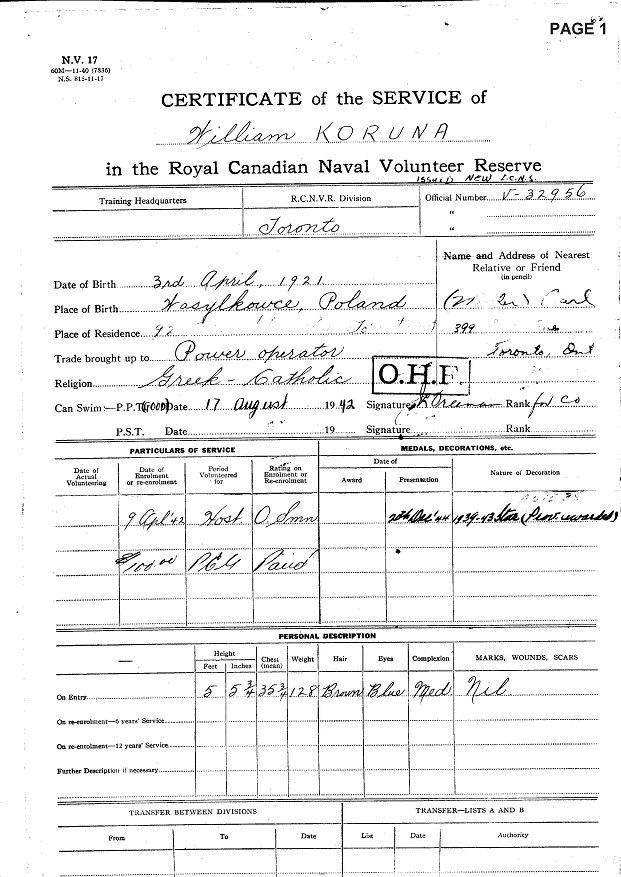 PAGE 1
N.V. 17
60M—11-40 (7836)
N.S. 815-11-17
CERTIFICATE of the SERVICE of
William KORUNA
in the Royal Canadian Naval Volunteer Reserve
ISSUED NEW I.C.N.S.
Training Headquarters R.C.N.V.R. Division Official Number V-32956
Toronto "
"
Name and Address of Nearest
Relative or Friend
(in pencil)
Date of Birth 3rd April, 1921
Place of Birth Wasylkowce, Poland Carl
Place of Residence 92 399
Trade brought up to Power operator Toronto, Ont
Religion Greek-Catholic O.H.F.
Can Swim:—P.P.T. (GOOD) Date 17 August 1942 Signature Rank
P.S.T. Date 19 Signature Rank
PARTICULARS OF SERVICE MEDALS, DECORATIONS, etc.
Date of Actual Volunteering Date of Enrolment or re-enrolment Period Volunteered for Rating on Enrolment or Re-enrolment Date of Award Presentation Nature of Decoration
9 Apl '42 Host. O. Smn 20th Dec '44 1939-43 Star
$100.00 Paid
PERSONAL DESCRIPTION
Height Feet Inches Chest (mean) Weight Hair Eyes Complexion MARKS, WOUNDS, SCARS
On Entry 5 5 3/4 35 3/4 128 Brown Blue Med. Nil
On re-enrolment—6 years' Service
On re-enrolment—12 years' Service
Further Description if necessary
TRANSFER BETWEEN DIVISIONS TRANSFER—LISTS A AND B
From To Date List Date Authority